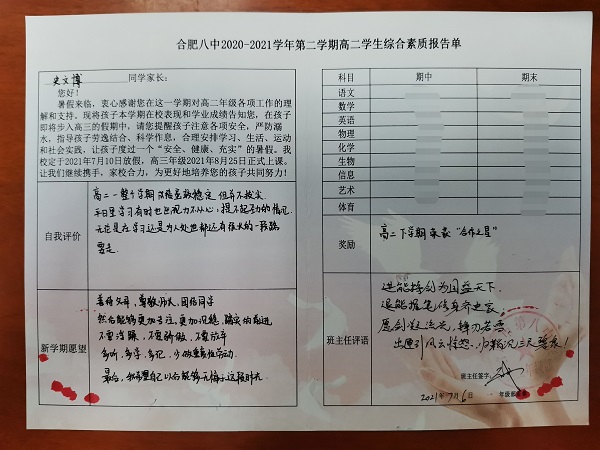 合肥八中2020-2021学年第二学期高二学生综合素质报告单
史文博 同学家长：
您好！
暑假来临，衷心感谢您在这一学期对高二年级各项工作的理
解和支持。现将孩子本学期在校表现和学业成绩告知您，在孩子
即将步入高三的假期中，请您提醒孩子注意各项安全，严防溺
水，指导孩子劳逸结合、科学作息，合理安排学习、生活、运动
和社会实践，让孩子度过一个“安全、健康、充实”的暑假。我
校定于2021年7月10日放假，高三年级2021年8月25日正式上课。
让我们继续携手，家校合力，为更好地培养您的孩子共同努力！
自我评价
高二一整个学期 成绩虽较稳定 但并不拔尖
平日里学习有时也出现力不从心，提不起劲的情况
无论是在学习还是为人处世都还有很大的一段路
要走
新学期愿望
善待父母，尊敬师长，团结同学
然后能够更加专注，更加沉稳，踏实的前进
不要浮躁，不要骄傲，不要放弃
多听，多写，多记，少做重复性劳动
最后，我希望自己以后能够无悔于这段时光
科目 期中 期末
语文
数学
英语
物理
化学
生物
信息
艺术
体育
奖励
高二下学期 荣获“合作之星”
班主任评语
进能择剑为国鉴天下
退能推笔修身齐世家
愿剑
出匣引风云
班主任签字：
2021年7月6日
年级部盖章